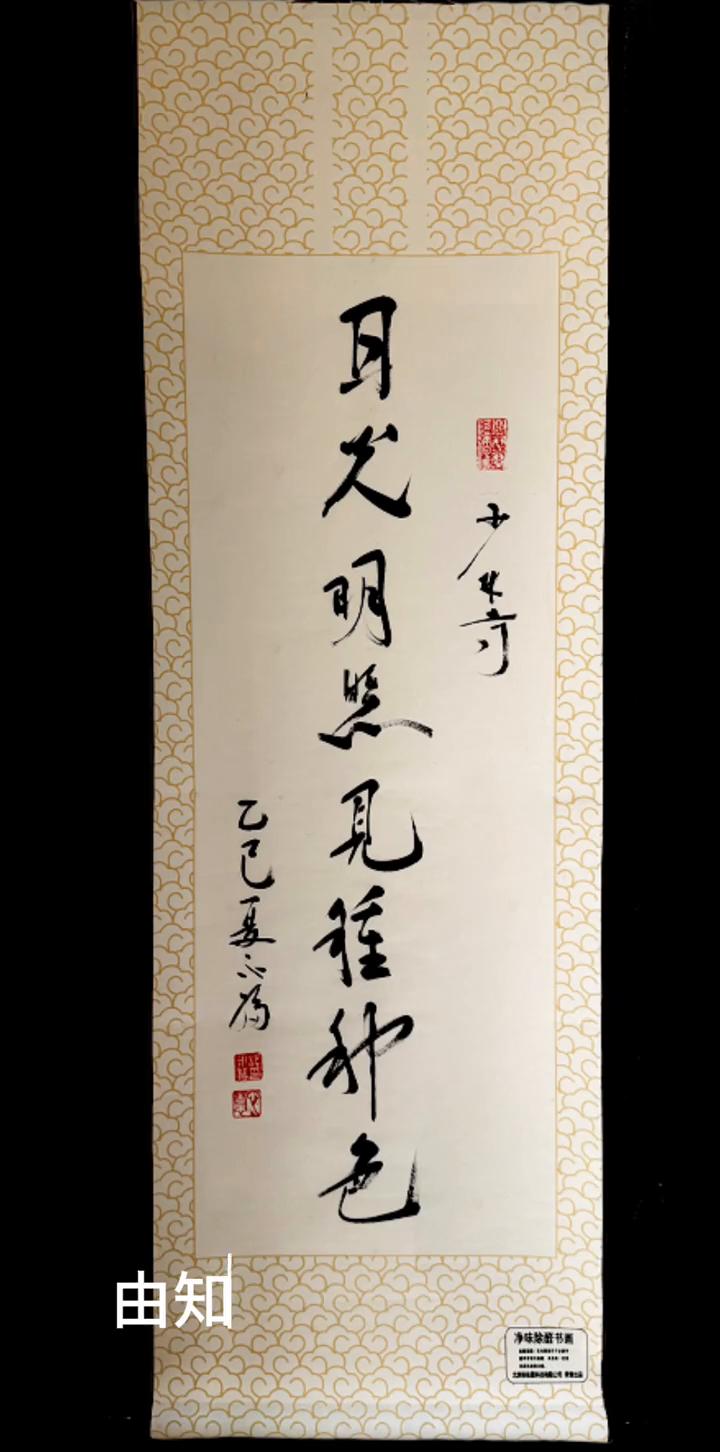 少林寺
日光明照見種种色
乙巳夏
由知
净味除醛书画